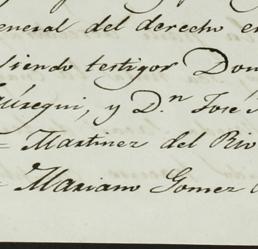 general del derecho en
siendo testigos Don
y D.n José
= Martinez del Rio
= Mariano Gomez